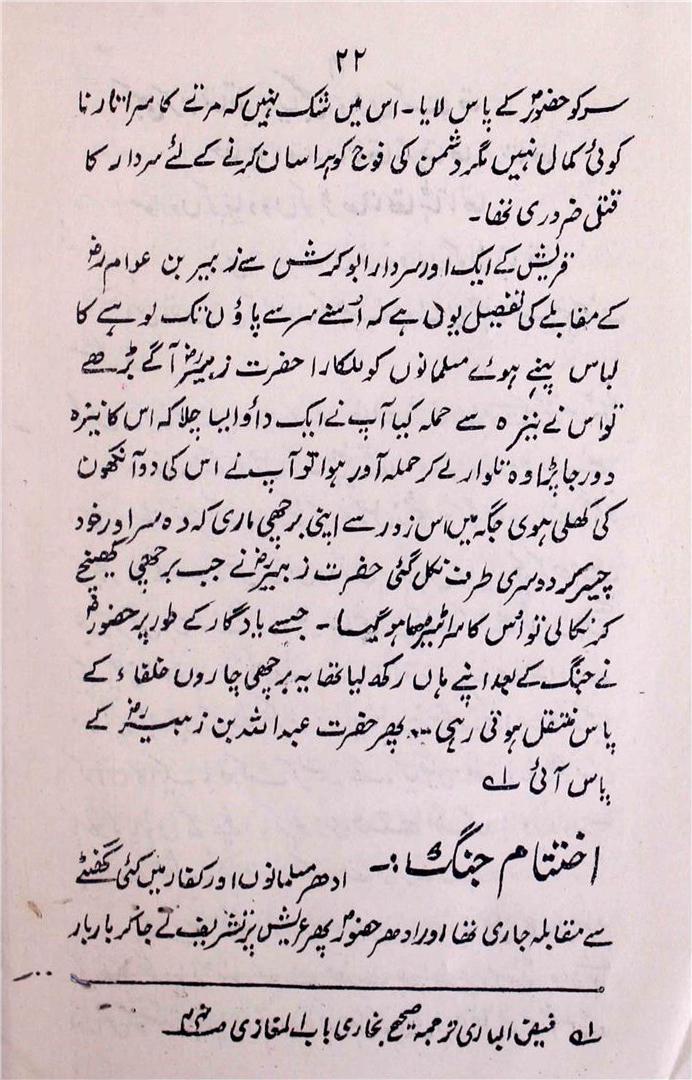 ۲۲
سر کو حضورؐ کے پاس لایا۔ اس میں شک نہیں کہ مرتے کا سر اتارنا
کوئی کمال نہیں مگر دشمن کی فوج کو ہراسان کرنے کے لئے سردار کا
قتل ضروری تھا۔
قریش کے ایک اور سردار ابو کرش سے زبیر بن عوامؓ
کے مقابلے کی تفصیل یوں ہے کہ اُسنے سر سے پاؤں تک لوہے کا
لباس پہنے ہوئے مسلمانوں کو للکارا حضرت زبیرؓ آگے بڑھے
تو اس نے نیزہ سے حملہ کیا آپ نے ایک داؤ ایسا چلا کہ اس کا نیزہ
دور جا پڑا وہ تلوار لے کر حملہ آور ہوا تو آپ نے اس کی دو آنکھوں
کی کھلی ہوی جگہ میں اس زور سے اپنی برچھی ماری کہ وہ سر اور خود
چیر کر دوسری طرف نکل گئی حضرت زبیرؓ نے جب برچھی کھینچ
کر نکالی تو اُس کا سر ٹیڑھا ہو گیا۔ جسے یادگار کے طور پر حضورؐ
نے جنگ کے بعد اپنے ہاں رکھ لیا تھا یہ برچھی چاروں خلفاء کے
پاس منتقل ہوتی رہی ... پھر حضرت عبداللہ بن زبیرؓ کے
پاس آئی ۱ـ
اختتام جنگ :۔ ادھر مسلمانوں اور کفار میں کئی گھنٹے
سے مقابلہ جاری تھا اور ادھر حضورؐ پھر عریش پر تشریف لے جا کر بار بار
۱ـ فیض الباری ترجمہ صحیح بخاری باب المغازی